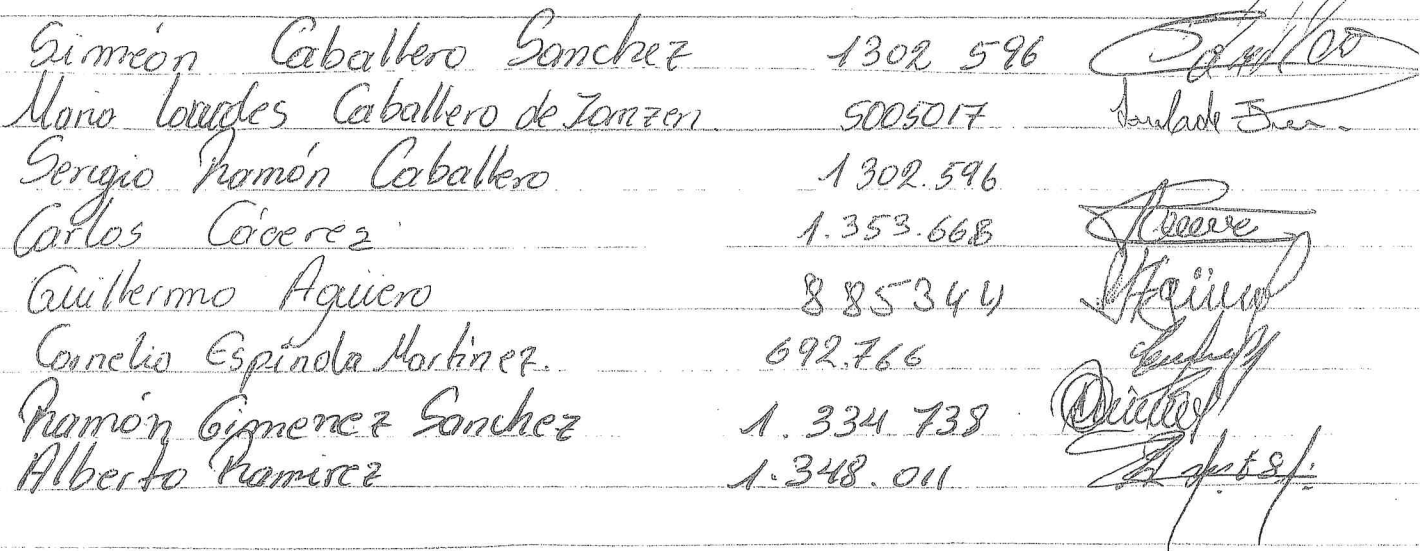 Simeón Caballero Sanchez 1302 596
Maria Lourdes Caballero de Janzen. 5005017
Sergio Ramón Caballero 1302.596
Carlos Cácerez 1.353.668
Guillermo Agüero 885344 Agüero
Cornelio Espínola Martínez. 692.766
Ramón Gimenez Sanchez 1.334 738
Alberto Ramirez 1.348.011